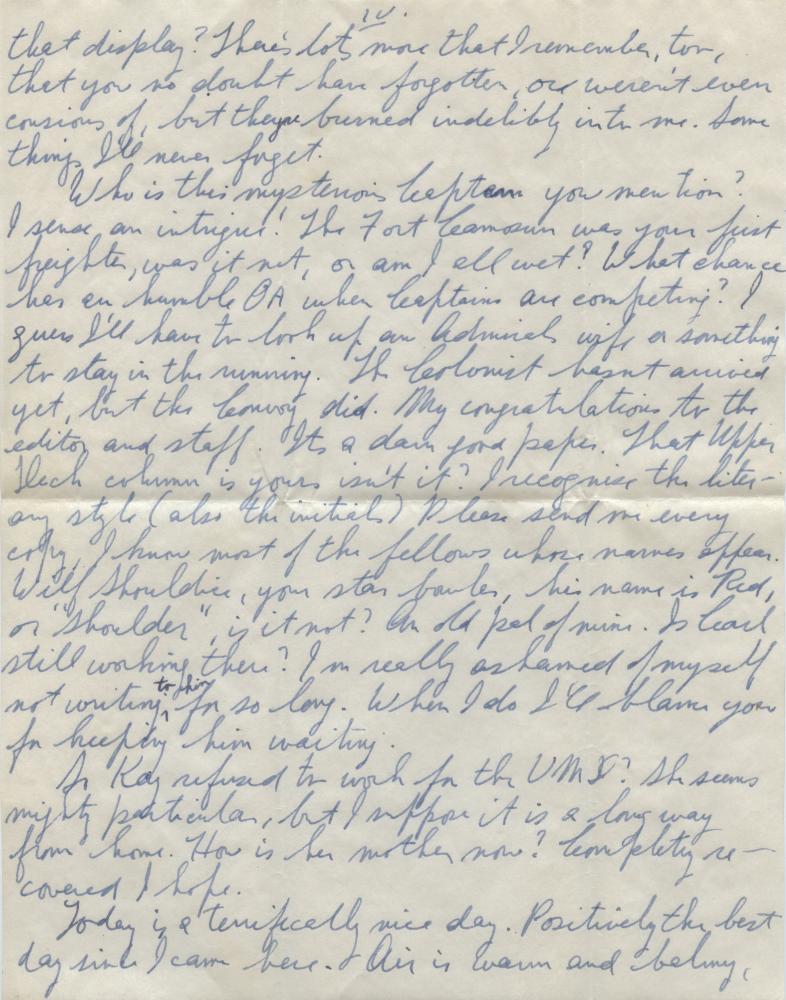 IV.
that display? There's lots more that I remember, too,
that you no doubt have forgotten, or weren't even
consious of, but they're burned indelibly into me. Some
things I'll never forget.
Who is this mysterious Captain you mention?
I sense an intrigue! The Fort Camosun was your first
freighter, was it not, or am I all wet? What chance
has an humble OA when Captains are competing? I
guess I'll have to look up an Admirals wife or something
to stay in the running. The Colonist hasn't arrived
yet, but the Convoy did. My congratulations to the
editor and staff. Its a darn good paper. That Upper
Deck column is yours isn't it? I recognise the liter-
ary style (also the initials) Please send me every
copy. I know most of the fellows whose names appear.
Wilf Shouldice, your star bowler, his name is Red,
or "Shoulder", is it not? An old pal of mine. Is Carl
still working there? I'm really ashamed of myself
not writing to him for so long. When I do I'll blame you
for keeping him waiting.
So Kay refused to work for the VMD? She seems
mighty particular, but I suppose it is a long way
from home. How is her mother now? Completly re-
covered I hope.
Today is a terrifically nice day. Positively the best
day since I came here. Air is warm and balmy,